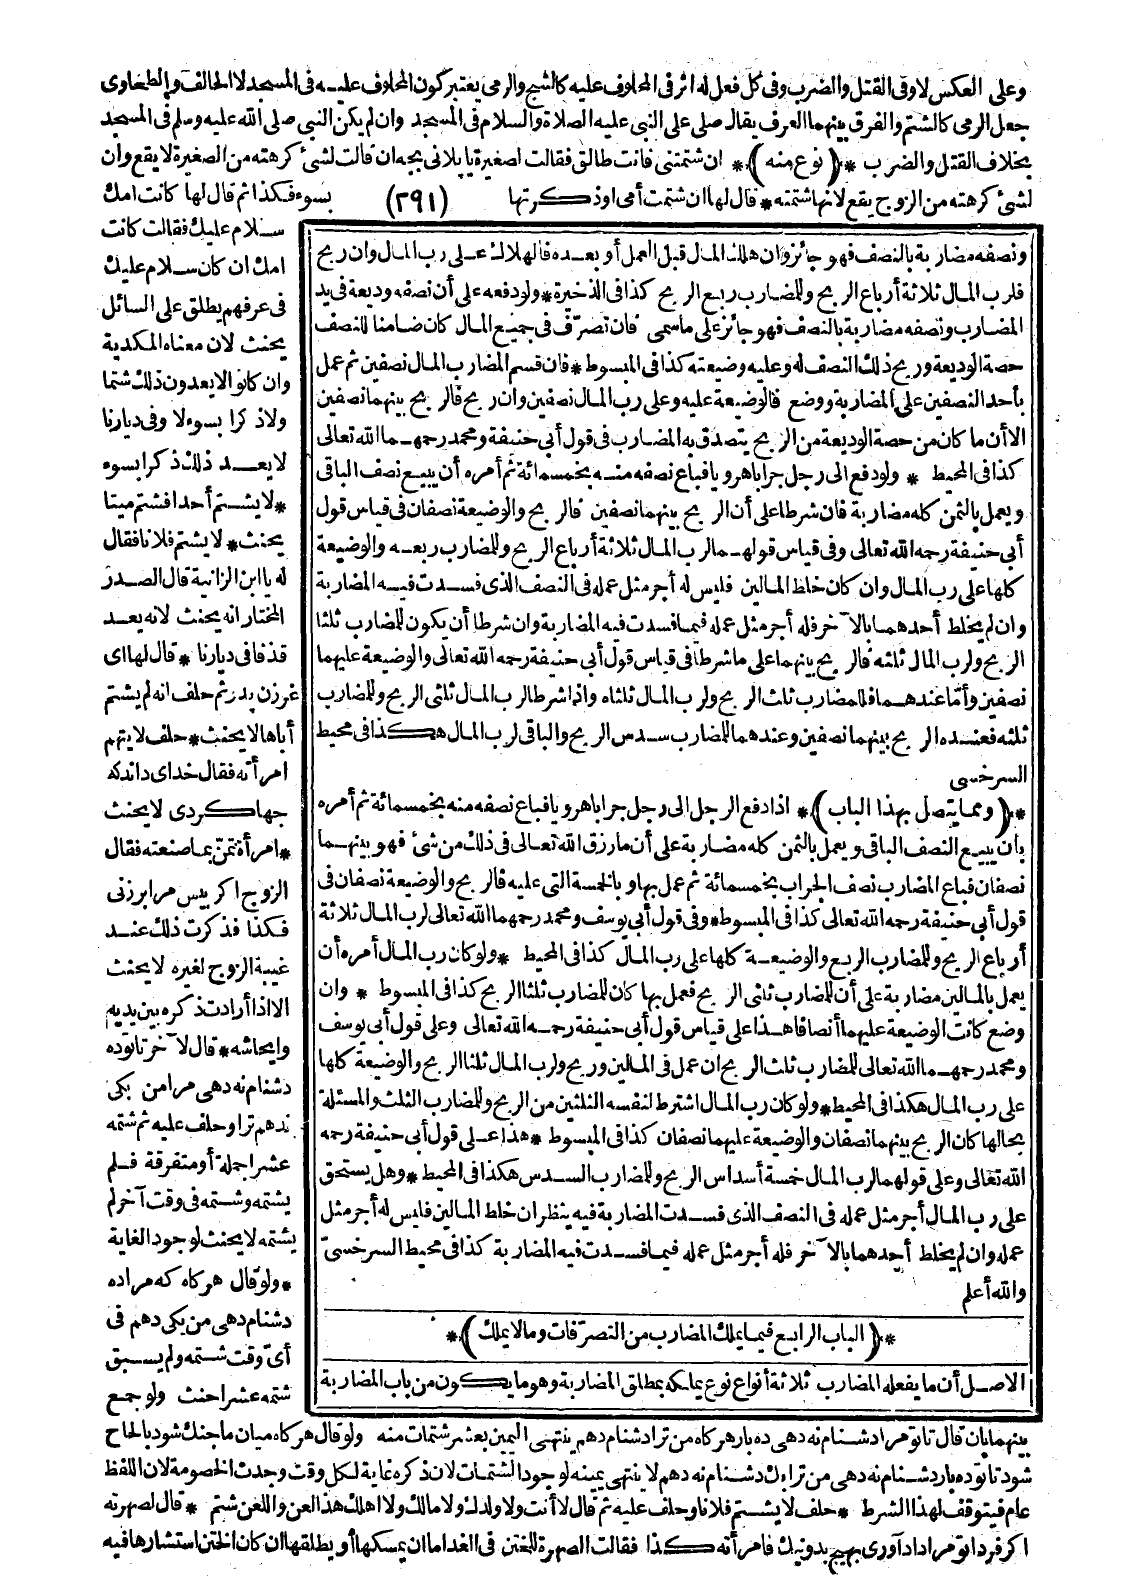 وعلى العكس لا وفى القتل والضرب وفى كل فعل له اثر فى المحلوف عليه كالشج والرمى يعتبر كون المحلوف عليه فى المسجد لا الحالف والطحاوى
جعل الرمى كالشتم والفرق بينهما العرف يقال صلى على النبى عليه الصلاة والسلام فى المسجد وان لم يكن النبى صلى الله عليه وسلم فى المسجد
بخلاف القتل والضرب *(نوع منه)* ان شتمتنى فانت طالق فقالت لصغيره يا بلانى بجه ان قالت لشئ كرهته من الصغيرة لا يقع وان
لشئ كرهته من الزوج يقع لانها شتمته * قال لها ان شتمت أمى اوذكرتها (٢٩١) بسوء فكذا ثم قال لها كانت امك
سلام عليك فقالت كانت
امك ان كان سلام عليك
فى عرفهم يطلق على السائل
يحنث لان معناه المكدية
وان كانوا لا يعدون ذلك شتما
ولا ذكرا بسوء لا وفى ديارنا
لا يعد ذلك ذكرا بسوء
* لا يشتم أحدا فشتم ميتا
يحنث * لا يشتم فلانا فقال
له يا ابن الزانية قال الصدر
المختار انه يحنث لانه يعد
قذفا فى ديارنا * قال لها اى
غرزن پدر ثم حلف انه لم يشتم
أباها لا يحنث * حلف لا يتهم
امرأته فقال خداى داندكه
جها كردى لا يحنث
* امرأة تمن بما صنعته فقال
الزوج اكر پيس مرا برزنى
فكذا فذكرت ذلك عند
غيبة الزوج لغيره لا يحنث
الا اذا أرادت ذكره بين يديه
وايحاشه * قال لآخر تا توده
دشنام نه دهى مرا من يكى
ندهم ترا وحلف عليه ثم شتمه
عشرا جملة أو متفرقة فلم
يشتمه وشتمه فى وقت آخر لم
يشتمه لا يحنث لوجود الغاية
* ولو قال هر كاه كه مراده
دشنام دهى من يكى دهم فى
أى وقت شتمه ولم يسبق
شتمه عشرا حنث ولو جمع
ونصفه مضاربة بالنصف فهو جائز وان هلك المال قبل العمل أو بعده فالهلاك على رب المال وان ربح
فلرب المال ثلاثة أرباع الربح وللمضارب ربع الربح كذا فى الذخيرة * ولو دفعه على أن نصفه وديعة فى يد
المضارب ونصفه مضاربة بالنصف فهو جائز على ما سمى فان تصرّف فى جميع المال كان ضامنا للنصف
حصة الوديعة وربح ذلك النصف له وعليه وضيعته كذا فى المبسوط * فان قسم المضارب المال نصفين ثم عمل
بأحد النصفين على المضاربة ووضع فالوضيعة عليه وعلى رب المال نصفين وان ربح فالربح بينهما نصفين
الا أن ما كان من حصة الوديعة من الربح يتصدق به المضارب فى قول أبى حنيفة ومحمد رحمهما الله تعالى
كذا فى المحيط * ولو دفع الى رجل جرابا هرويا فباع نصفه منه بخمسمائة ثم أمره أن يبيع نصف الباقى
ويعمل بالثمن كله مضاربة فان شرطا على أن الربح بينهما نصفين فالربح والوضيعة نصفان فى قياس قول
أبى حنيفة رحمه الله تعالى وفى قياس قولهما لرب المال ثلاثة أرباع الربح وللمضارب ربعه والوضيعة
كلها على رب المال وان كان خلط المالين فليس له أجر مثل عمله فى النصف الذى فسدت فيه المضاربة
وان لم يخلط أحدهما بالآخر فله أجر مثل عمله فيما فسدت فيه المضاربة وان شرطا أن يكون للمضارب ثلثا
الربح ولرب المال ثلثه فالربح بينهما على ما شرطا فى قياس قول أبى حنيفة رحمه الله تعالى والوضيعة عليهما
نصفين وأمّا عندهما فللمضارب ثلث الربح ولرب المال ثلثاه واذا شرطا لرب المال ثلثى الربح وللمضارب
ثلثه فعنده الربح بينهما نصفين وعندهما للمضارب سدس الربح والباقى لرب المال هكذا فى محيط
السرخسى
*(ومما يتصل بهذا الباب)* اذا دفع الرجل الى رجل جرابا هرويا فباع نصفه منه بخمسمائة ثم أمره
بان يبيع النصف الباقى ويعمل بالثمن كله مضاربة على أن ما رزق الله تعالى فى ذلك من شئ فهو بينهما
نصفان فباع المضارب نصف الجراب بخمسمائة ثم عمل بها وبالخمسة التى عليه فالربح والوضيعة نصفان فى
قول أبى حنيفة رحمه الله تعالى كذا فى المبسوط * وفى قول أبى يوسف ومحمد رحمهما الله تعالى لرب المال ثلاثة
أرباع الربح وللمضارب الربع والوضيعة كلها على رب المال كذا فى المحيط * ولو كان رب المال أمره أن
يعمل بالمالين مضاربة على أن للمضارب ثلثى الربح فعمل بها كان للمضارب ثلثا الربح كذا فى المبسوط * وان
وضع كانت الوضيعة عليهما أنصافا هذا على قياس قول أبى حنيفة رحمه الله تعالى وعلى قول أبى يوسف
ومحمد رحمهما الله تعالى للمضارب ثلث الربح ان عمل فى المالين وربح ولرب المال ثلثا الربح والوضيعة كلها
على رب المال هكذا فى المحيط * ولو كان رب المال اشترط لنفسه الثلثين من الربح وللمضارب الثلث والمسئلة
بحالها كان الربح بينهما نصفان والوضيعة عليهما نصفان كذا فى المبسوط * هذا على قول أبى حنيفة رحمه
الله تعالى وعلى قولهما لرب المال خمسة أسداس الربح وللمضارب السدس هكذا فى المحيط * وهل يستحق
على رب المال أجر مثل عمله فى النصف الذى فسدت المضاربة فيه ينظر ان خلط المالين فليس له أجر مثل
عمله وان لم يخلط أحدهما بالآخر فله أجر مثل عمله فيما فسدت فيه المضاربة كذا فى محيط السرخسىّ
والله أعلم
*(الباب الرابع فيما يملك المضارب من التصرّفات وما لا يملك)*
الاصل أن ما يفعله المضارب ثلاثة أنواع نوع يملكه بمطلق المضاربة وهو ما يكون من باب المضاربة
بينهما بان قال تا تو مرا دشنام نه دهى ده بار هركاه من ترا دشنام دهم ينتهى اليمين بعشر شتمات منه ولو قال هركاه ميان ما جنك شود بالحاح
شود تا توده بار دشنام نه دهى من ترا يك دشنام نه دهم لا ينتهى يمينه لوجود الشتمات لان ذكره غاية لكل وقت وجدت الخصومة لان اللفظ
عام فيتوقف لهذا الشرط * حلف لا يشتم فلانا وحلف عليه ثم قال لا أنت ولا ولدك ولا مالك ولا اهلك هذا لعن واللعن شتم * قال لصهرته
اكر فردا تو مرا داد آورى بهيج بدونيك فامرأته كذا فقالت الصهرة للختن فى الغد اما ان يمسكها أو يطلقها ان كان الختن استشارها فيه